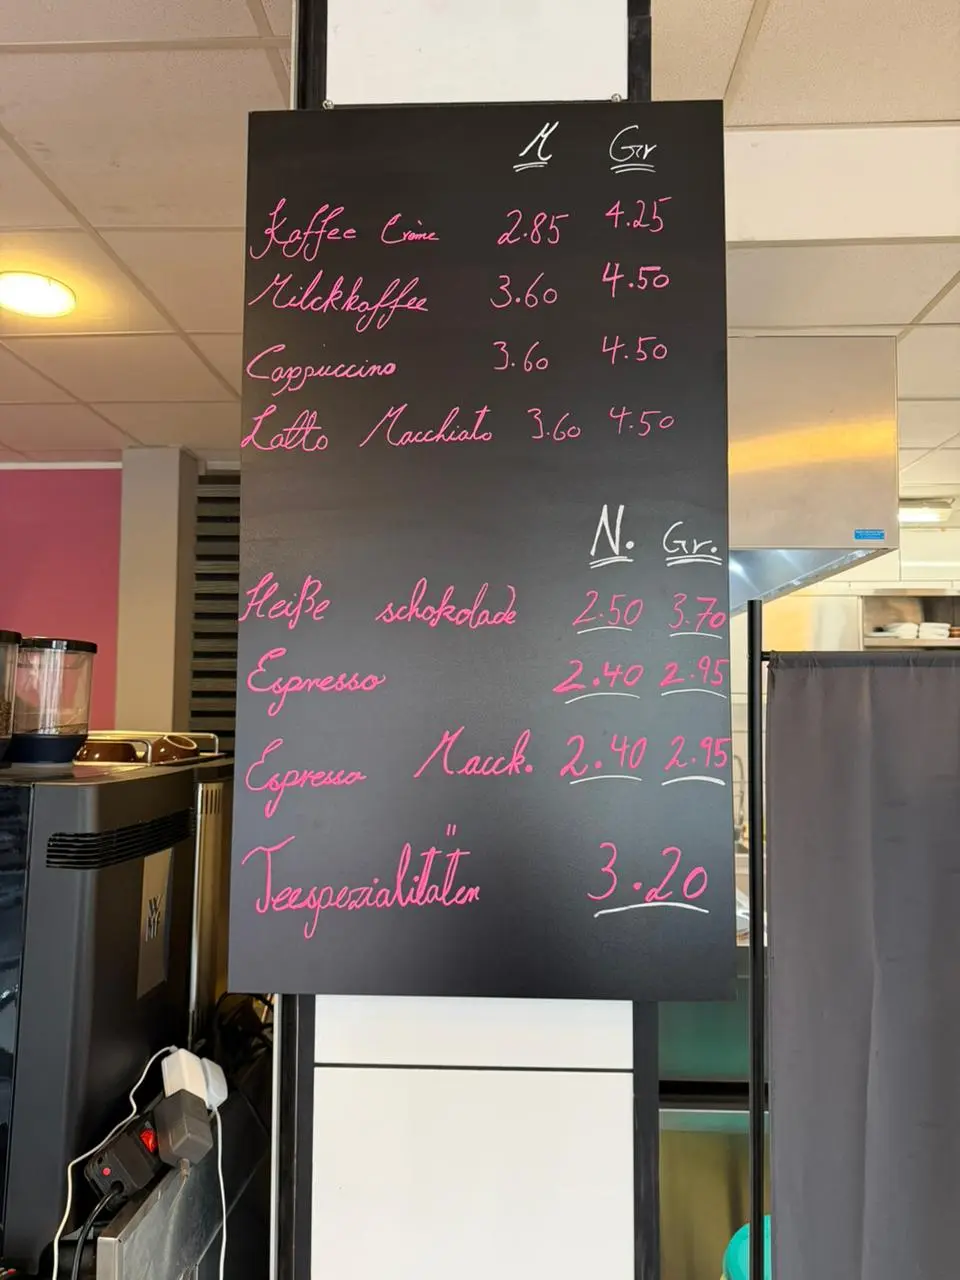 M Gr
Kaffee Crème 2.85 4.25
Milckkaffee 3.60 4.50
Cappuccino 3.60 4.50
Latto Macchiato 3.60 4.50
N. Gr.
Heiße schokolade 2.50 3.70
Espresso 2.40 2.95
Espresso Macck. 2.40 2.95
Teespezialitäten 3.20
WMF